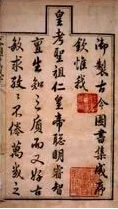 御製古今圖書集成序
欽惟我
皇考聖祖仁皇帝聰明睿智
亶生知之質而又好古
敏求孜〻不倦萬幾之